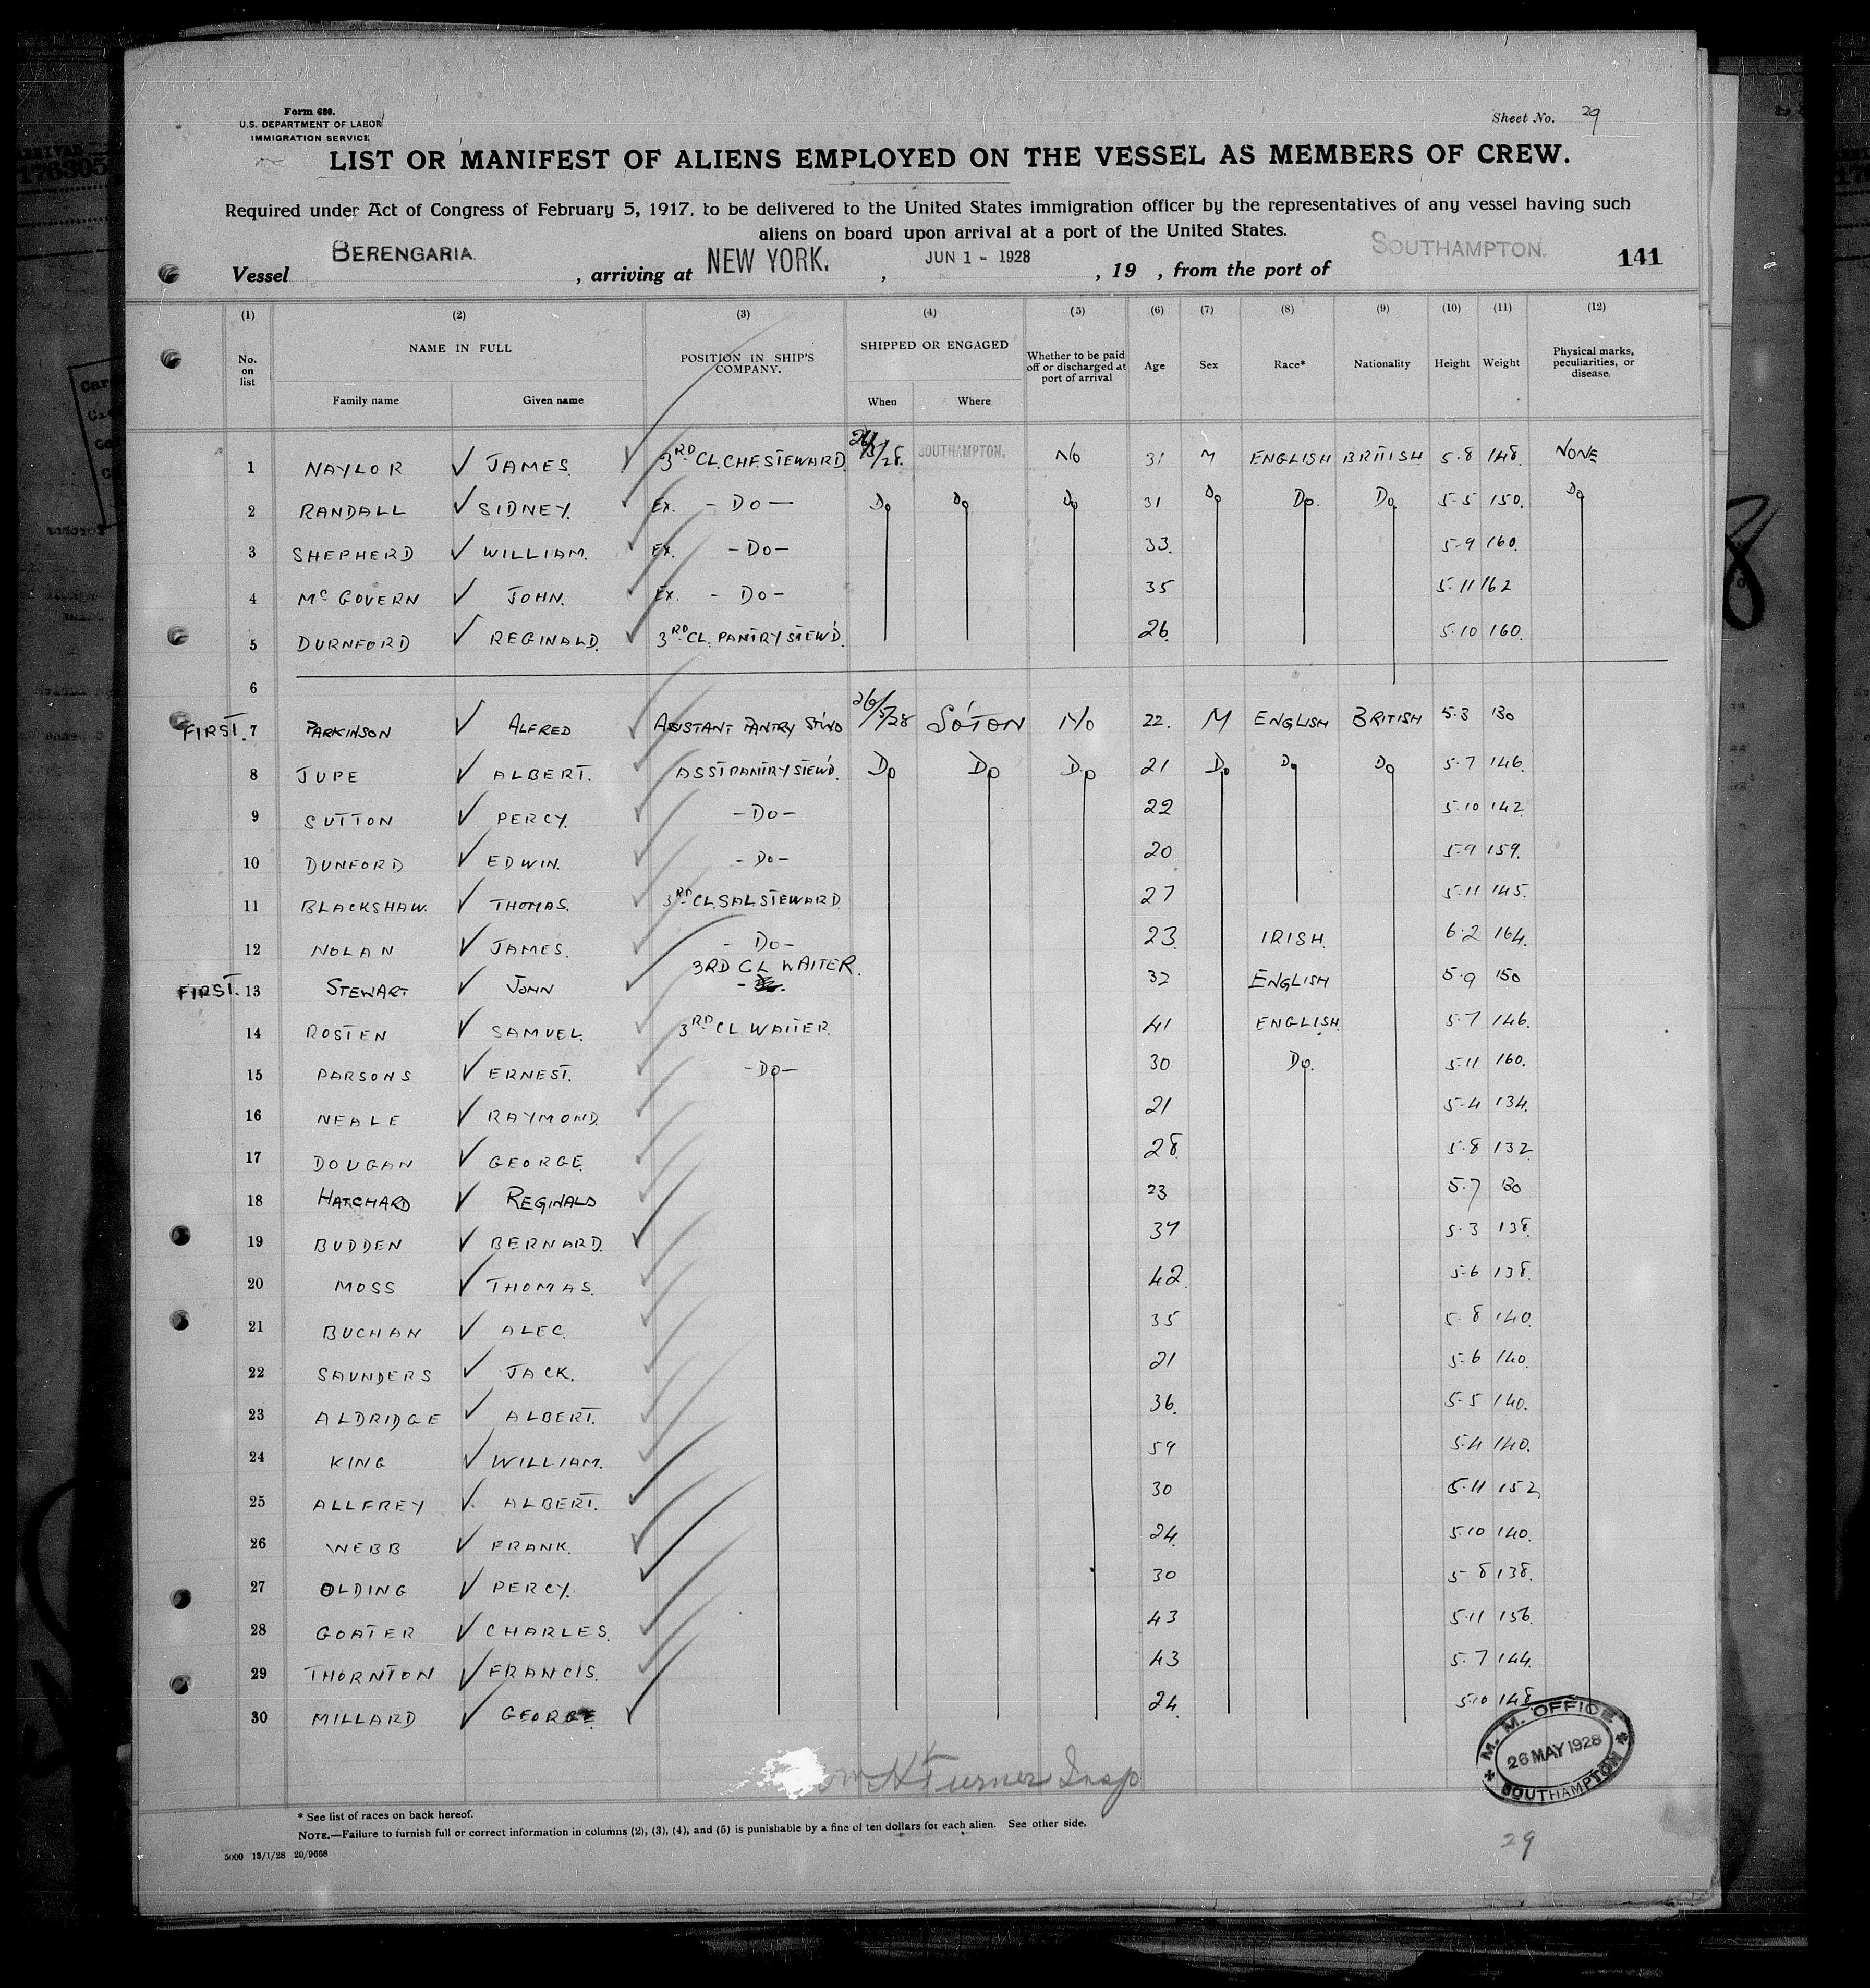 Form 680.
U.S. DEPARTMENT OF LABOR
IMMIGRATION SERVICE
Sheet No. 29
LIST OR MANIFEST OF ALIENS EMPLOYED ON THE VESSEL AS MEMBERS OF CREW.
Required under Act of Congress of February 5, 1917, to be delivered to the United States immigration officer by the representatives of any vessel having such
aliens on board upon arrival at a port of the United States.
Vessel BERENGARIA. , arriving at NEW YORK. , JUN 1 - 1928 , 19 , from the port of SOUTHAMPTON. 141
(1) (2) (3) (4) (5) (6) (7) (8) (9) (10) (11) (12)
No. on list NAME IN FULL Family name Given name POSITION IN SHIP'S COMPANY. SHIPPED OR ENGAGED When Where Whether to be paid off or discharged at port of arrival Age Sex Race* Nationality Height Weight Physical marks, peculiarities, or disease.
1 NAYLOR ✓ JAMES. 3RD CL. CHF. STEWARD. 26/5/28. SOUTHAMPTON. NO 31 M ENGLISH BRITISH 5.8 148. NONE
2 RANDALL ✓ SIDNEY. Ex. - DO - Do Do Do 31 Do Do. Do. 5-5 150. Do
3 SHEPHERD ✓ WILLIAM. Ex. - DO - 33. 5-9 160.
4 Mc GOVERN ✓ JOHN. Ex. - DO - 35 5.11 162
5 DURNFORD ✓ REGINALD. 3RD CL. PANTRY STEW'D. 26. 5.10 160.
6
FIRST. 7 PARKINSON ✓ ALFRED ASSISTANT PANTRY ST'WD 26/5/28 SO'TON NO 22. M ENGLISH BRITISH 5.3 130
8 JUPE ✓ ALBERT. ASST PANTRY STEW'D. Do Do Do 21 Do Do Do 5.7 146.
9 SUTTON ✓ PERCY. - DO - 22 5.10 142.
10 DUNFORD ✓ EDWIN. - DO - 20 5.9 159.
11 BLACKSHAW. ✓ THOMAS. 3RD CL SAL STEWARD 27 5.11 145.
12 NOLAN ✓ JAMES. - DO - 23. IRISH. 6.2 164.
FIRST. 13 STEWART ✓ JOHN 3RD CL WAITER. 32 ENGLISH 5.9 150
14 ROSTEN ✓ SAMUEL. 3RD CL WAITER. 41 ENGLISH. 5.7 146.
15 PARSONS ✓ ERNEST. - DO - 30 Do. 5.11 160.
16 NEALE ✓ RAYMOND. 21 5.4 134.
17 DOUGAN ✓ GEORGE. 28. 5.8 132.
18 HATCHARD ✓ REGINALD 23 5.7 130
19 BUDDEN ✓ BERNARD. 37 5.3 138.
20 MOSS ✓ THOMAS. 42. 5.6 138.
21 BUCHAN ✓ ALEC. 35 5.8 140.
22 SAUNDERS ✓ JACK. 21 5.6 140.
23 ALDRIDGE ✓ ALBERT. 36. 5.5 140.
24 KING ✓ WILLIAM. 59 5.4 140.
25 ALLFREY ✓ ALBERT. 30 5.11 152.
26 WEBB ✓ FRANK. 24. 5.10 140.
27 OLDING ✓ PERCY. 30 5-8 138.
28 GOATER ✓ CHARLES. 43 5.11 156.
29 THORNTON ✓ FRANCIS. 43 5.7 144.
30 MILLARD ✓ GEORGE. 24. 5.10 148.
H Turner Insp
M. M. OFFICE
26 MAY 1928
SOUTHAMPTON
* See list of races on back hereof.
NOTE.—Failure to furnish full or correct information in columns (2), (3), (4), and (5) is punishable by a fine of ten dollars for each alien. See other side.
5000 13/1/28 20/9668
29